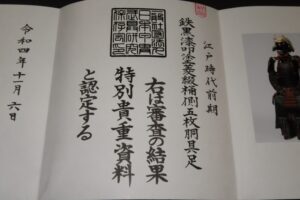 江戸時代前期
鉄黒漆塗菱綴桶側五枚胴具足
右は審査の結果
特別貴重資料
と認定する
令和四年十一月六日